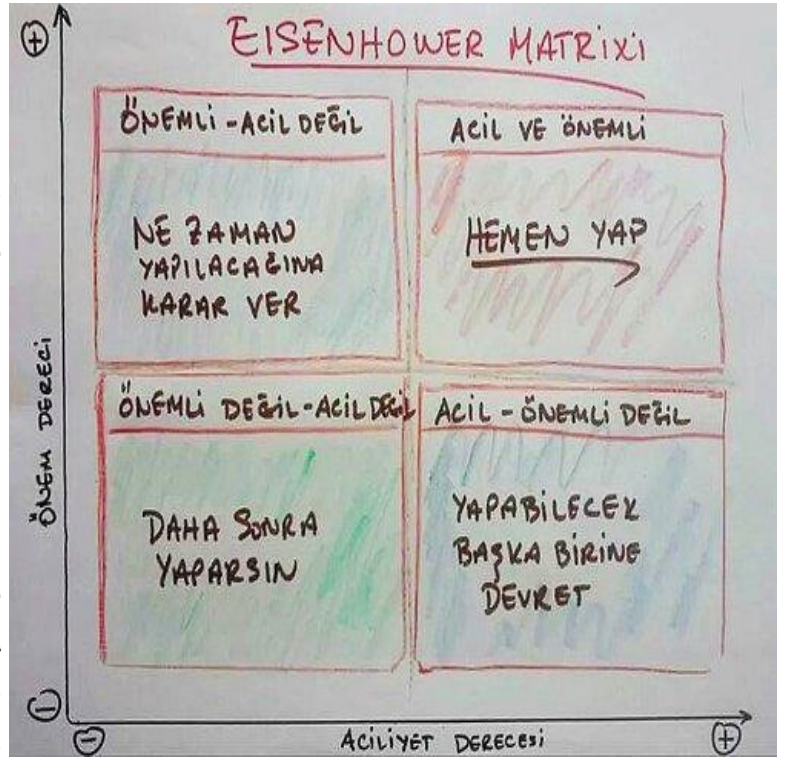 EISENHOWER MATRIXİ
ÖNEMLİ - ACİL DEĞİL
NE ZAMAN
YAPILACAĞINA
KARAR VER
ACİL VE ÖNEMLİ
HEMEN YAP
ÖNEMLİ DEĞİL - ACİL DEĞİL
DAHA SONRA
YAPARSIN
ACİL - ÖNEMLİ DEĞİL
YAPABİLECEK
BAŞKA BİRİNE
DEVRET
ÖNEM DERECİ
ACİLİYET DERECESİ
+
-
-
+